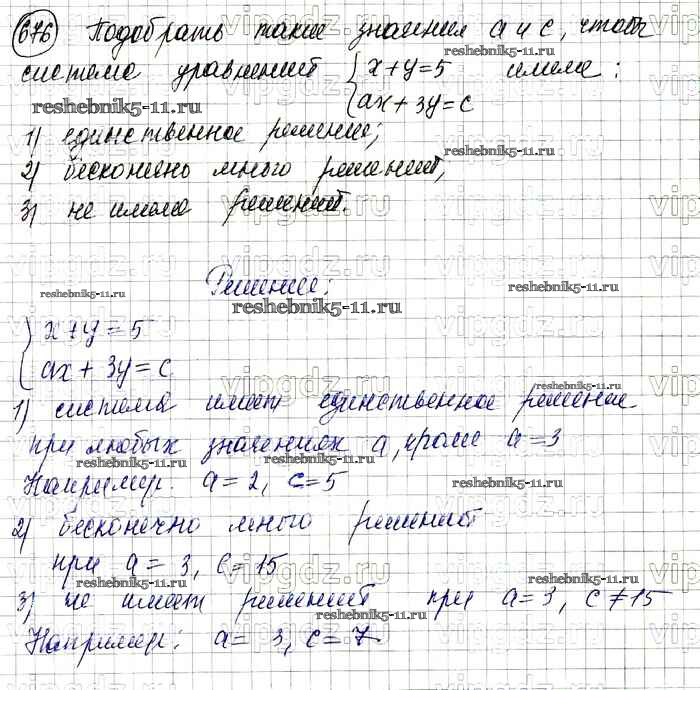 676 Подобрать такие значения a и c, чтобы
система уравнений { x+y=5 имела:
{ ax+3y=c
reshebnik5-11.ru
1) единственное решение;
2) бесконечно много решений;
3) не имела решений.
Решение:
reshebnik5-11.ru
{ x+y=5
{ ax+3y=c
1) система имеет единственное решение
при любых значениях a, кроме a=3
Например: a=2, c=5
2) бесконечно много решений
при a=3, c=15
3) не имеет решений при a=3, c≠15
Например: a=3, c=7
vipgdz.ru